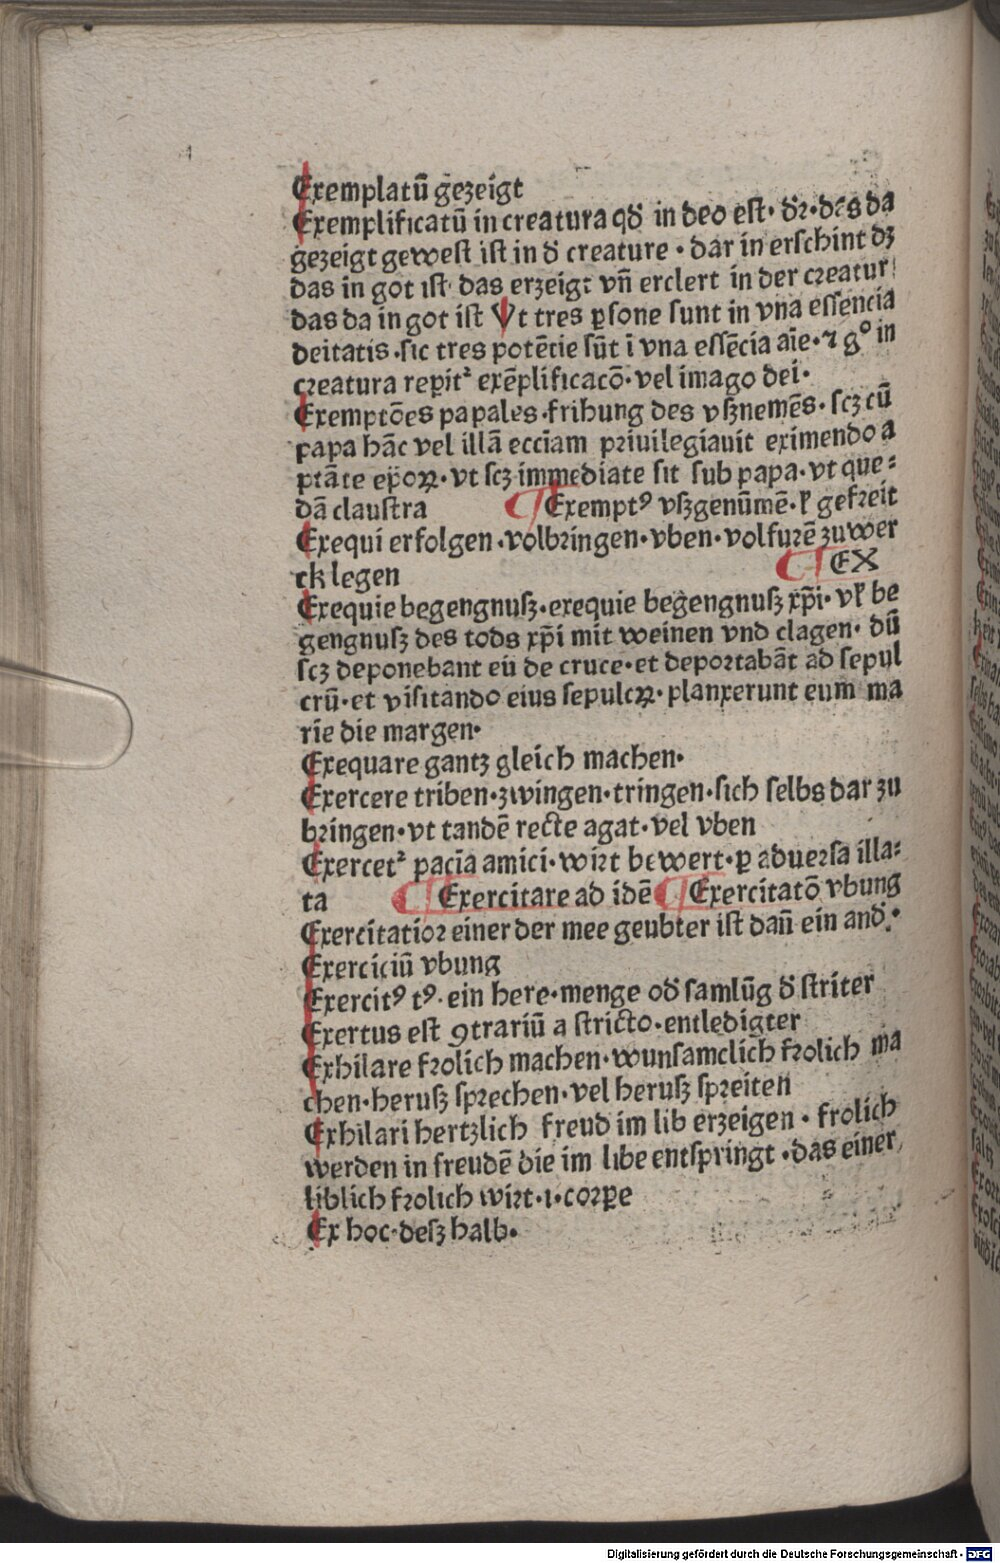 Exemplatū gezeigt
Exemplificatū in creatura qď in deo est· dꝛ·das da
gezeigt gewest ist in ď creature · dar in erschint dz
das in got ist· das erzeigt vn̄ erclert in der creatur
das da in got ist Vt tres ꝑsone sunt in vna essencia
deitatis ·sic tres potētie sūt ī vna essēcia aīe·⁊ gº in
creatura reꝑitᷣ exēplificacō·vel imago dei·
Exemptōes papales ·frihung des vßnemēs· scꝫ cū
papa hāc vel illā ecciam priuilegiauit eximendo a
ptāte ep̄oꝝ·vt scꝫ immediate sit sub papa·vt que⸗
dā claustra ¶Exemptꝰ vßgenūmē·ł gefreit
Exequi erfolgen ·volbringen·vben·volfurē zuwer
ck legen ¶EX
Exequie begengnuß·exequie begengnuß xp̄i· vł be
gengnuß des tods xp̄i mit weinen vnd clagen· dū
scꝫ deponebant eū de cruce·et deportabāt ad sepul
crū·et visitando eius sepulcꝝ·planxerunt eum ma
rie die margen·
Exequare gantz gleich machen·
Exercere triben·zwingen·tringen·sich selbs dar zu
bringen·vt tandē recte agat·vel vben
Exercetᷣ pacīa amici·wirt bewert·ꝑ aduersa illa⸗
ta ¶Exercitare ad idē ¶Exercitatō vbung
Exercitatior einer der mee geubter ist dan̄ ein and̛·
Exerciciū vbung
Exercitꝰ tꝰ· ein here·menge oď samlūg ď striter
Exertus est ꝯtrariū a stricto·entledigter
Exhilare frolich machen·wunsamclich frolich ma
chen·heruß sprechen·vel heruß spreiten
Exhilari hertzlich freud im lib erzeigen · frolich
werden in freudē die im libe entspringt ·das einer
liblich frolich wirt·i·corꝑe
Ex hoc·deß halb·
Digitalisierung gefördert durch die Deutsche Forschungsgemeinschaft - DFG